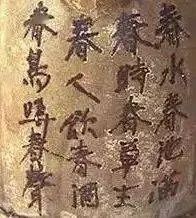 春水春池满
春時春草生
春人飲春酒
春鳥哢春聲